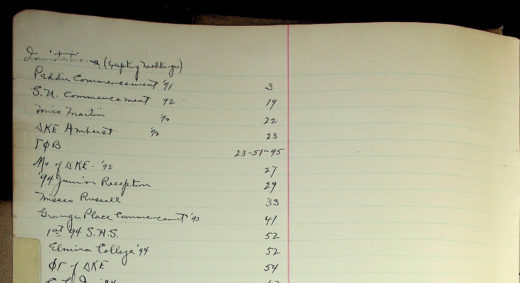 Invitations (Except Weddings)
Peddie Commencement '91 3
S.U. Commencement '92 19
Miss Martin '90 22
ΔKE Amherst '90 23
ΓΦΒ 23-51-95
of ΔKE. '92 27
'94 Junior Reception 29
Misses Russell 33
Granger Place Commencement '93 41
1st '94 S.H.S. 52
Elmira College '94 52
ΦΓ of ΔKE 54